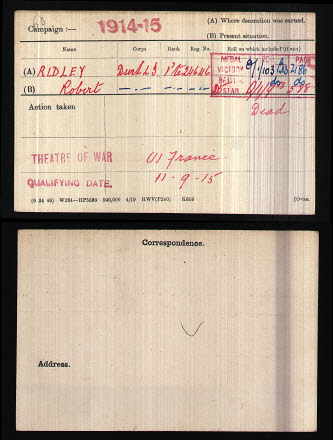 Campaign :— 1914-15
(A) Where decoration was earned.
(B) Present situation.
Name Corps Rank Reg. No. Roll on which included (if any)
MEDAL PAGE
(A) RIDLEY Durh L I Pte 24646 VICTORY 2186
(B) Robert do do STAR
Action taken Dead
THEATRE OF WAR (1) France
QUALIFYING DATE. 11-9-15
(6 34 46) W234—HP5590 500,000 4/19 HWV(P240) K608 [OVER.
Correspondence.
Address.